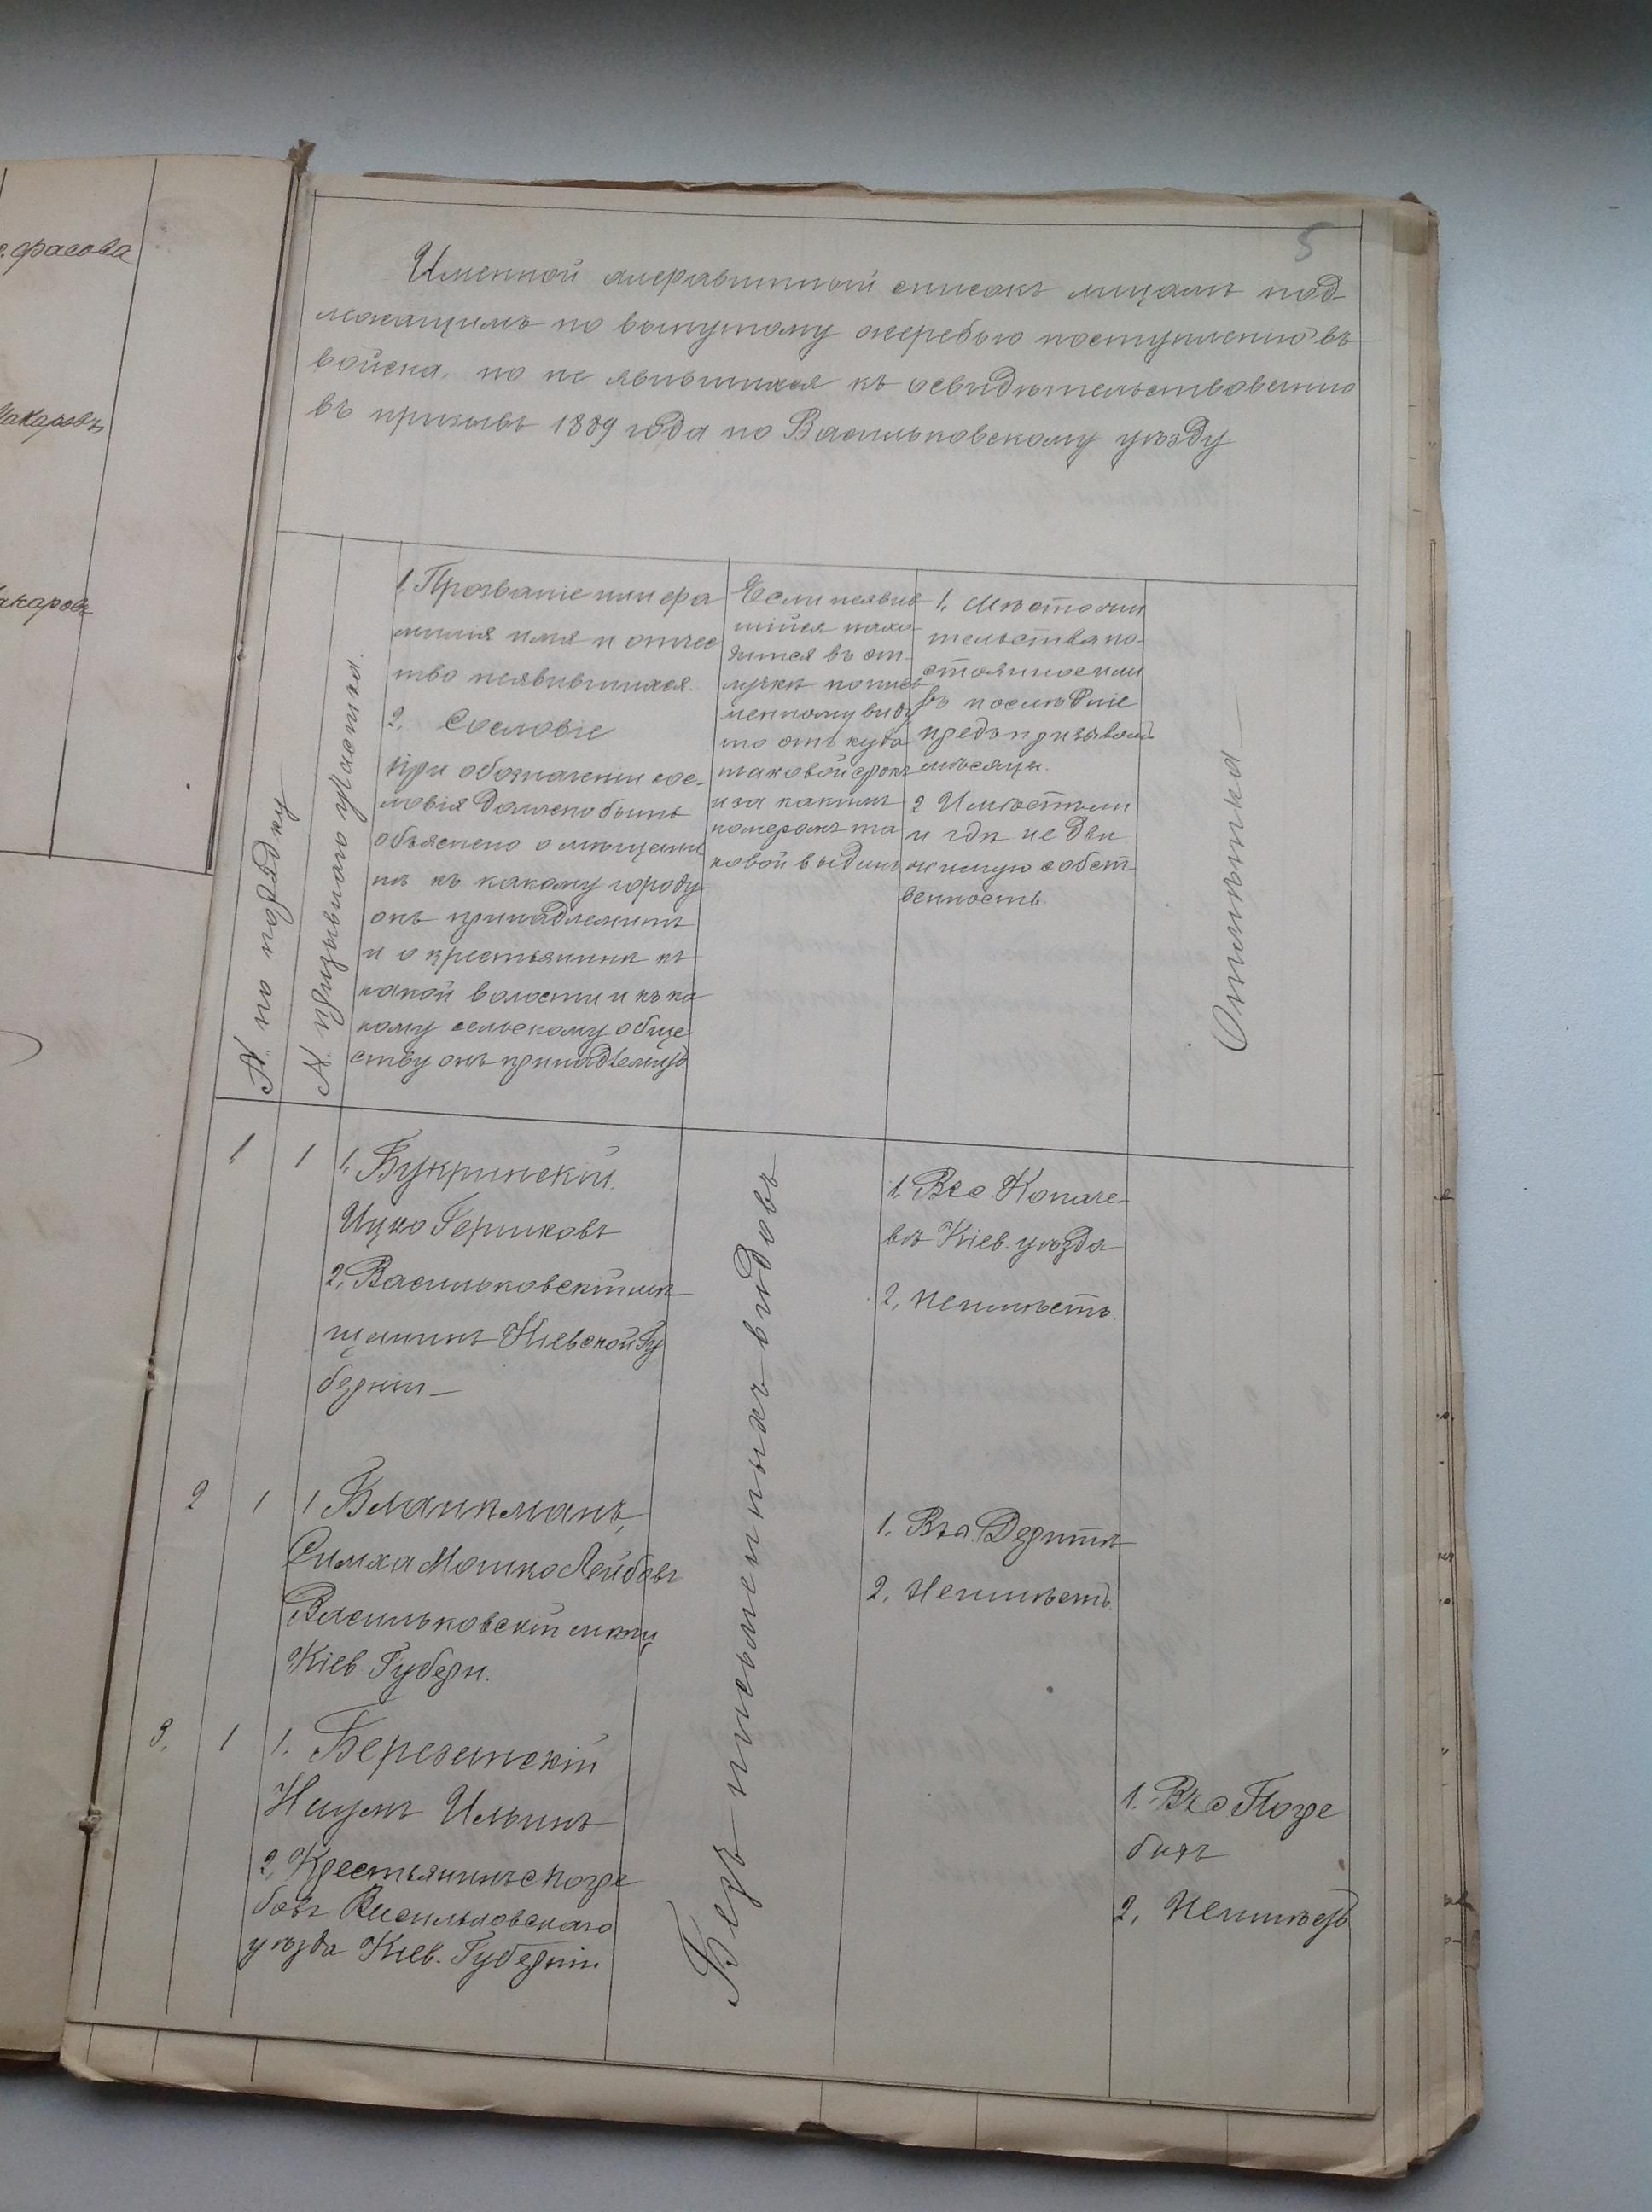 с. Фасова
Макаровъ
Макаров
5
Именной алфавитный списокъ лицамъ под-
лежащимъ по вынутому жеребью поступленію въ
войска, но не явившихся къ освидѣтельствованію
въ призывѣ 1889 года по Васильковскому уѣзду
№ по порядку
№ призывного участка.
1. Прозваніе или фа
милія имя и отчес
тво неявившихся.
2. Сословіе
При обозначеніи сос-
ловія должно быть
объяснено о мещани
нѣ къ какому городу
онъ принадлежитъ
и о крестьянинѣ къ
какой волости и къ ка
кому сельскому обще
ству онъ принадлежитъ
Если неявив
шійся нахо-
дится въ от-
лучкѣ по пись
менному виду
то откуда
таковой срокъ
и за какимъ
номеромъ та
ковой выданъ
1. Мѣсто жи
тельства по-
стоянное или
въ послѣдніе
предъ призывомъ
мѣсяцы.
2 Имѣетъ ли
и гдѣ недви
жимую собст
венность.
Отмѣтка
1 1 1. Букринскій.
Ицко Гершковъ
2. Васильковскій мѣ
щанинъ Кіевской Гу
берніи
Безъ письменныхъ видовъ
1. Въ с. Копаче-
вѣ Кіев. уѣзда
2, неимѣетъ.
2 1 1 Бланкманъ,
Симха Мошко Лейбовъ
Васильковскій мѣщ
Кіев Губерн.
1. Въ д. Дерптѣ
2. Неимѣетъ.
3. 1 1. Березанскій
Наумъ Ильинъ
2, Крестьянинъ с Погре
бовъ Васильковскаго
уѣзда Кіев. Губерніи.
1. Въ с Погре
бахъ
2, Неимѣетъ